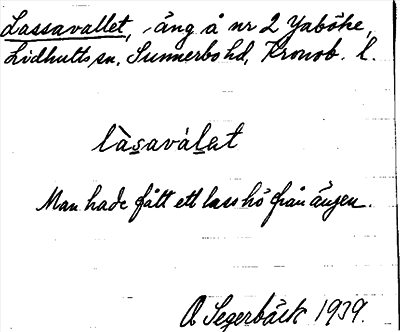 Lassavallet, äng å nr 2 Yaböke,
Lidhults sn, Sunnerbo hd, Kronob. l.
làsaválat
Man hade fått ett lass hö från ängen.
A Segerbäck 1939.